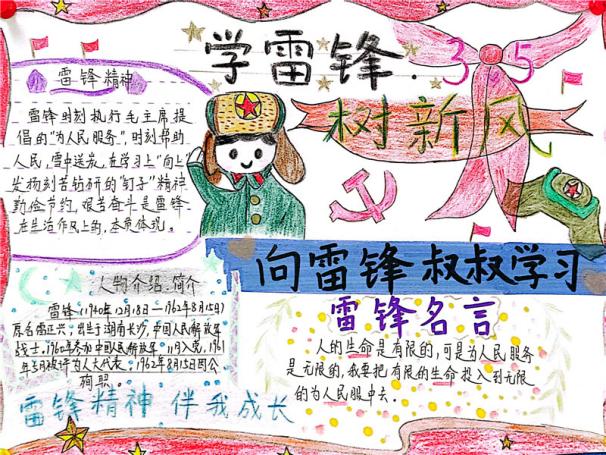 学雷锋.3.5
树新风
雷锋精神
雷锋时刻执行毛主席提
倡的“为人民服务”,时刻帮助
人民,雪中送炭,在学习上“向上”
发扬刻苦钻研的“钉子”精神
勤俭节约,艰苦奋斗是雷锋
在生活作风上的,本质体现。
向雷锋叔叔学习
人物介绍.简介
雷锋(1940年12月18日—1962年8月15日)
原名雷正兴,出生于湖南长沙,中国人民解放军
战士,1960年参加中国人民解放军11月入党,1961
年5月被评为人大代表,1962年8月15日因公
殉职。
雷锋名言
人的生命是有限的,可是为人民服务
是无限的,我要把有限的生命投入到无限
的为人民服中去。
雷锋精神 伴我成长